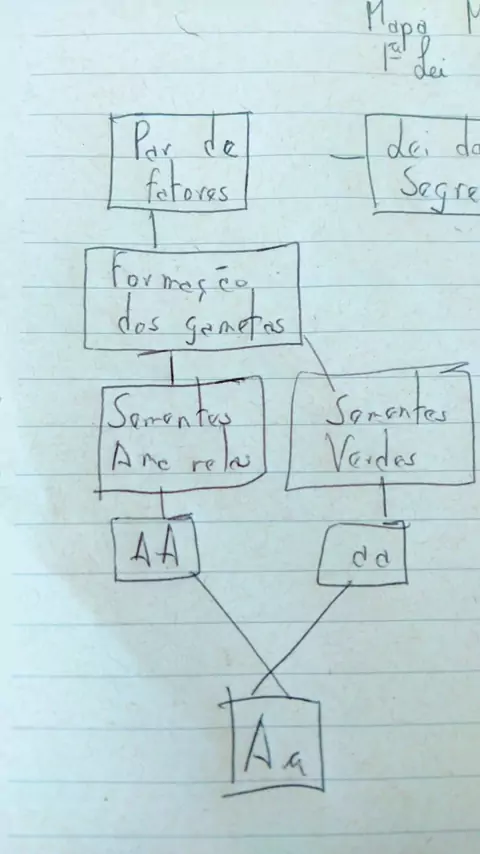 Mapa M
1ª Lei
Par de
fatores
Lei da
Segre
Formação
dos gametas
Sementes
Amarelas
Sementes
Verdes
AA
aa
Aa